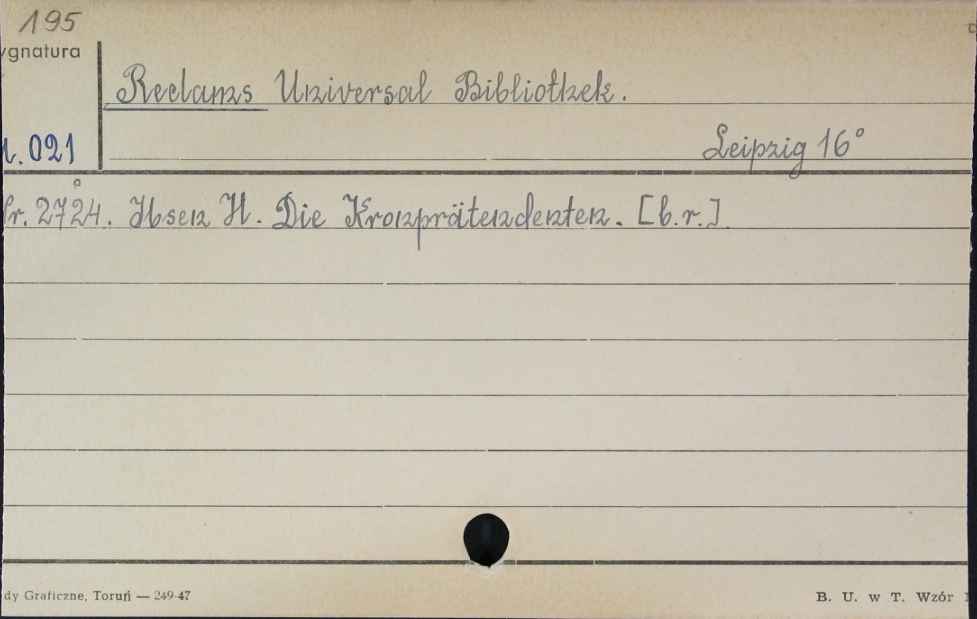 195
ygnatura
Reclams Universal Bibliothek.
Leipzig 16°
021
2724. Ibsen H. Die Kronprätendenten. [b.r.]
dy Graficzne, Toruń — 249-47
B. U. w T. Wzór